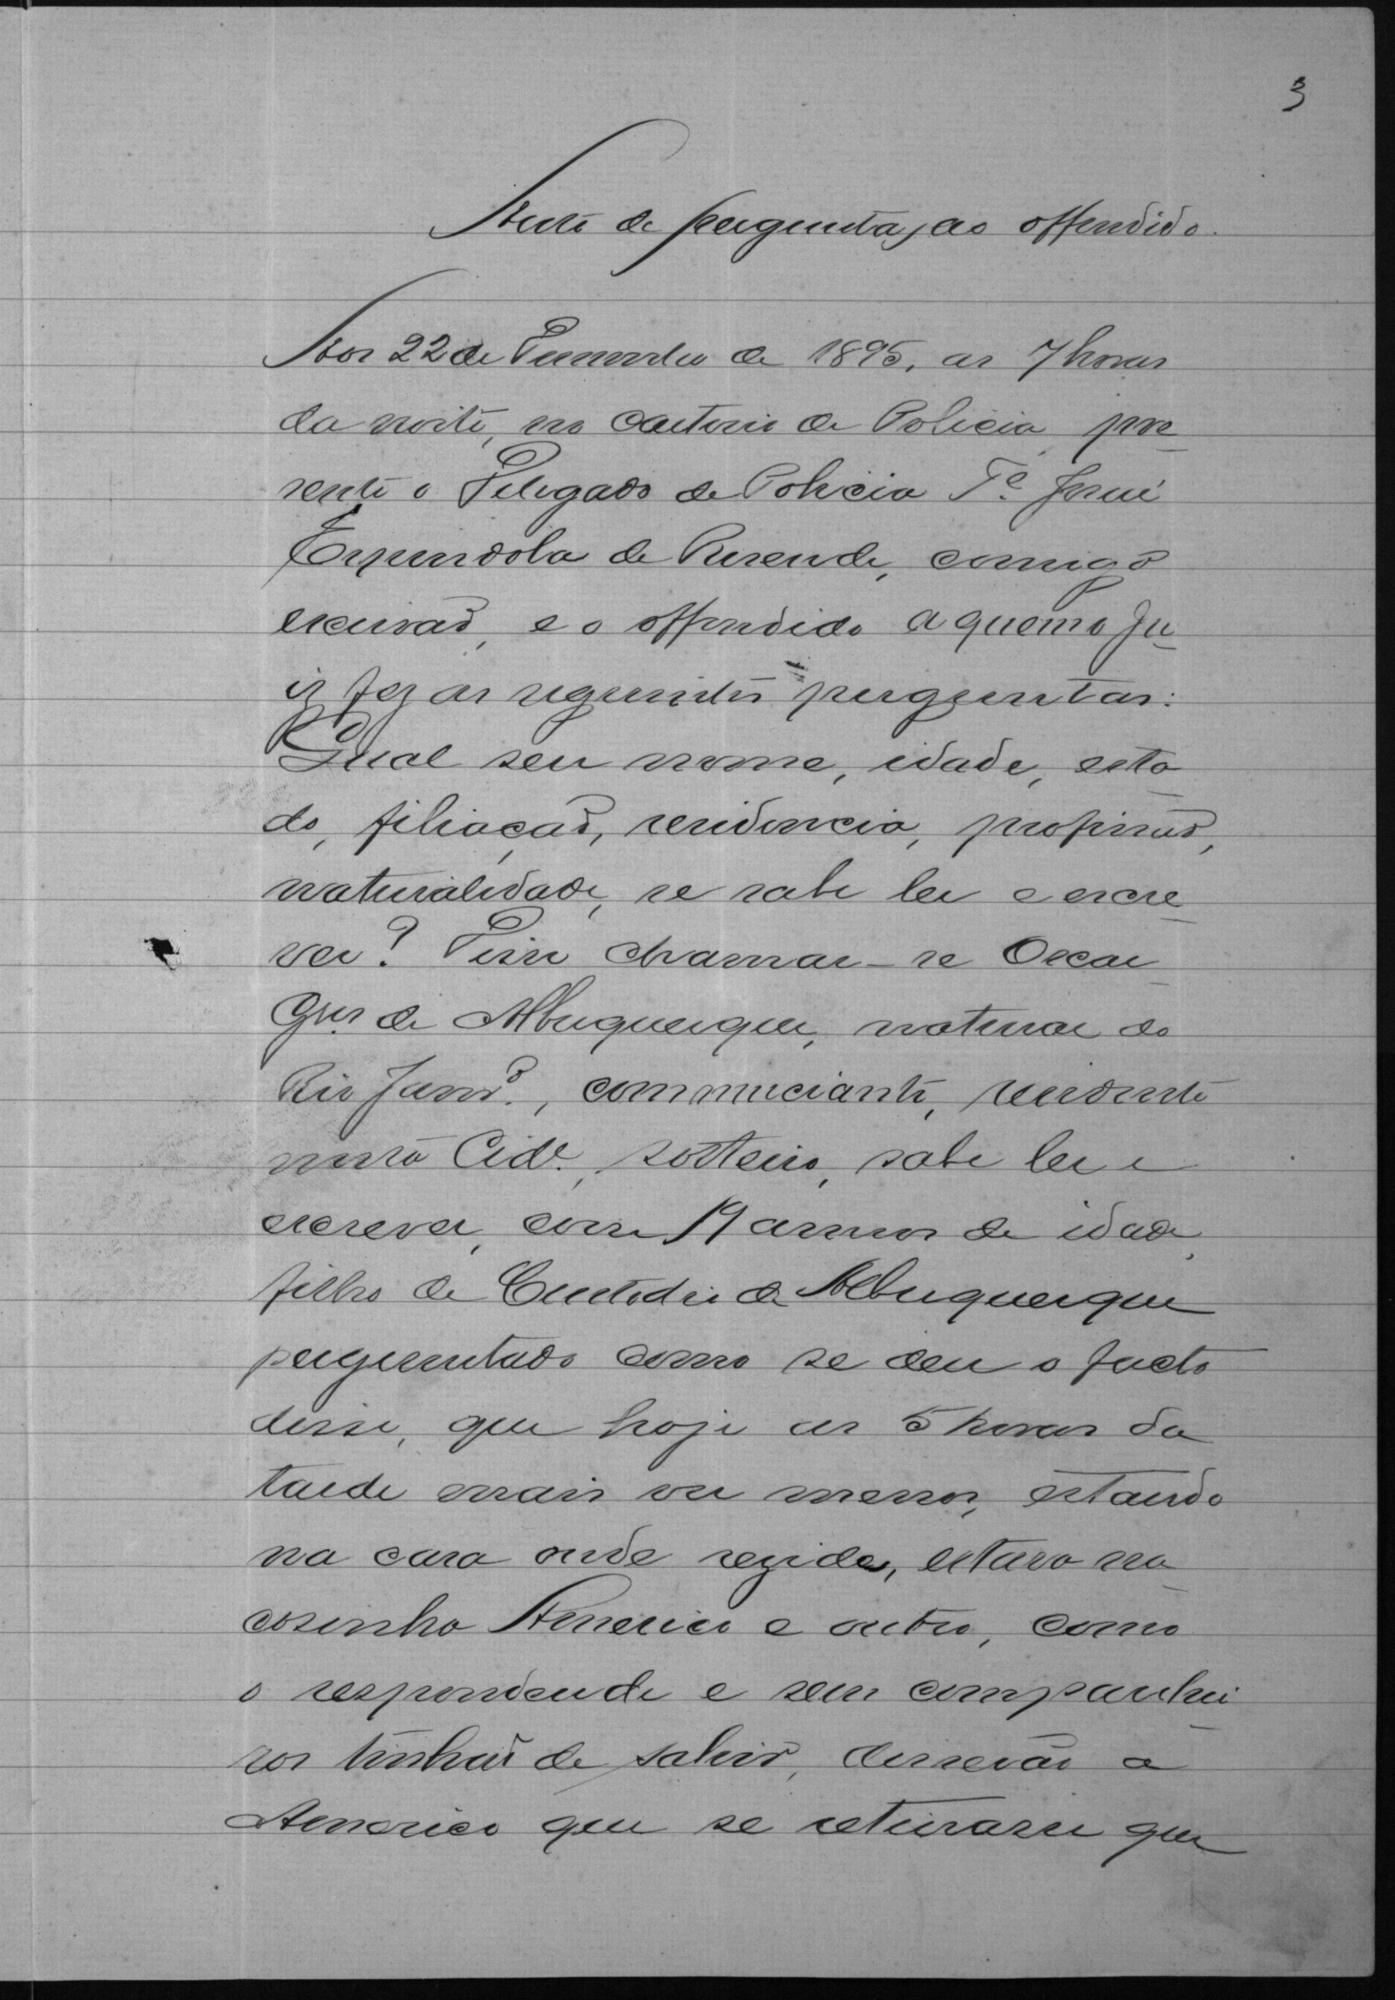 3
Auto de perguntas ao offendido.
Aos 22 de Dezembro de 1895, as 7 horas
da noite, no cartorio de Policia, pre
sente o Delegado de Policia Te. Josué
Espindola de Resende, comigo
escrivaõ, e o offendido a quem o Ju
iz fez as seguintes perguntas:
Qual seu nome, idade, esta
do, filiaçaõ, residencia, profissaõ,
naturalidade, se sabe ler e escre
ver? Disse chamar-se Oscar
de Albuquerque, natural do
Rio Janro., commerciante, residente
nesta Cide., solteiro, sabe ler e
escrever, com 19 annos de idade,
filho de Custodio de Albuquerque
perguntado como se deu o facto
disse, que hoje as 5 horas da
tarde mais ou menos, estando
na casa onde rezide, estava na
cosinha Americo e outro, como
o respondende e seus companhei
ros tinhaõ de sahir, disseraõ a
Americo que se retirasse que